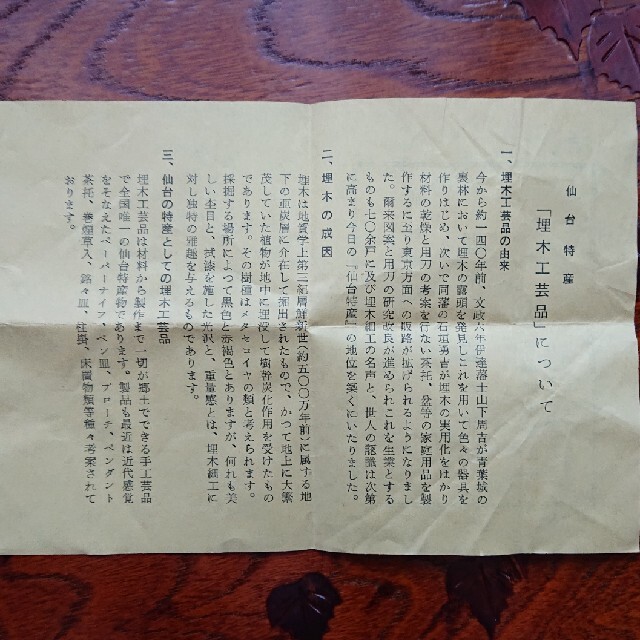 仙台特産
「埋木工芸品」について
一、埋木工芸品の由来
今から約一四〇年前、文政六年伊達藩士山下周吉が青葉城の
裏林において埋木の露頭を発見しこれを用いて色々の器具を
作りはじめ、次いで同藩の石垣勇吉が埋木の実用化をはかり
材料の乾燥と用刀の考案を行ない茶托、盆等の家庭用品を製
作するに至り東京方面への販路が拡げられるようになりまし
た。爾来図案と用刀の研究改良が進められこれを生業とする
ものも七〇余戸に及び埋木細工の名声と、世人の認識は次第
に高まり今日の「仙台特産」の地位を築くにいたりました。
二、埋木の成因
埋木は地質学上第三紀層鮮新世(約五〇〇万年前)に属する地
下の亜炭層に介在して掘出されたもので、かつて地上に大繁
茂していた植物が地中に埋没して炭化作用を受けたもの
であります。その樹種はメタセコイヤの類と考えられます。
採掘する場所によって黒色と赤褐色とありますが、何れも美
しい杢目と、拭漆を施した光沢と、重量感とは、埋木細工に
対し独特の雅趣を与えるものであります。
三、仙台の特産としての埋木工芸品
埋木工芸品は材料から製作まで一切が郷土でできる手工芸品
で全国唯一の仙台特産物であります。製品も最近は近代感覚
をそなえたペーパーナイフ、ペン皿、ブローチ、ペンダント
茶托、巻煙草入、銘々皿、柱掛、床置物類等種々考案されて
おります。